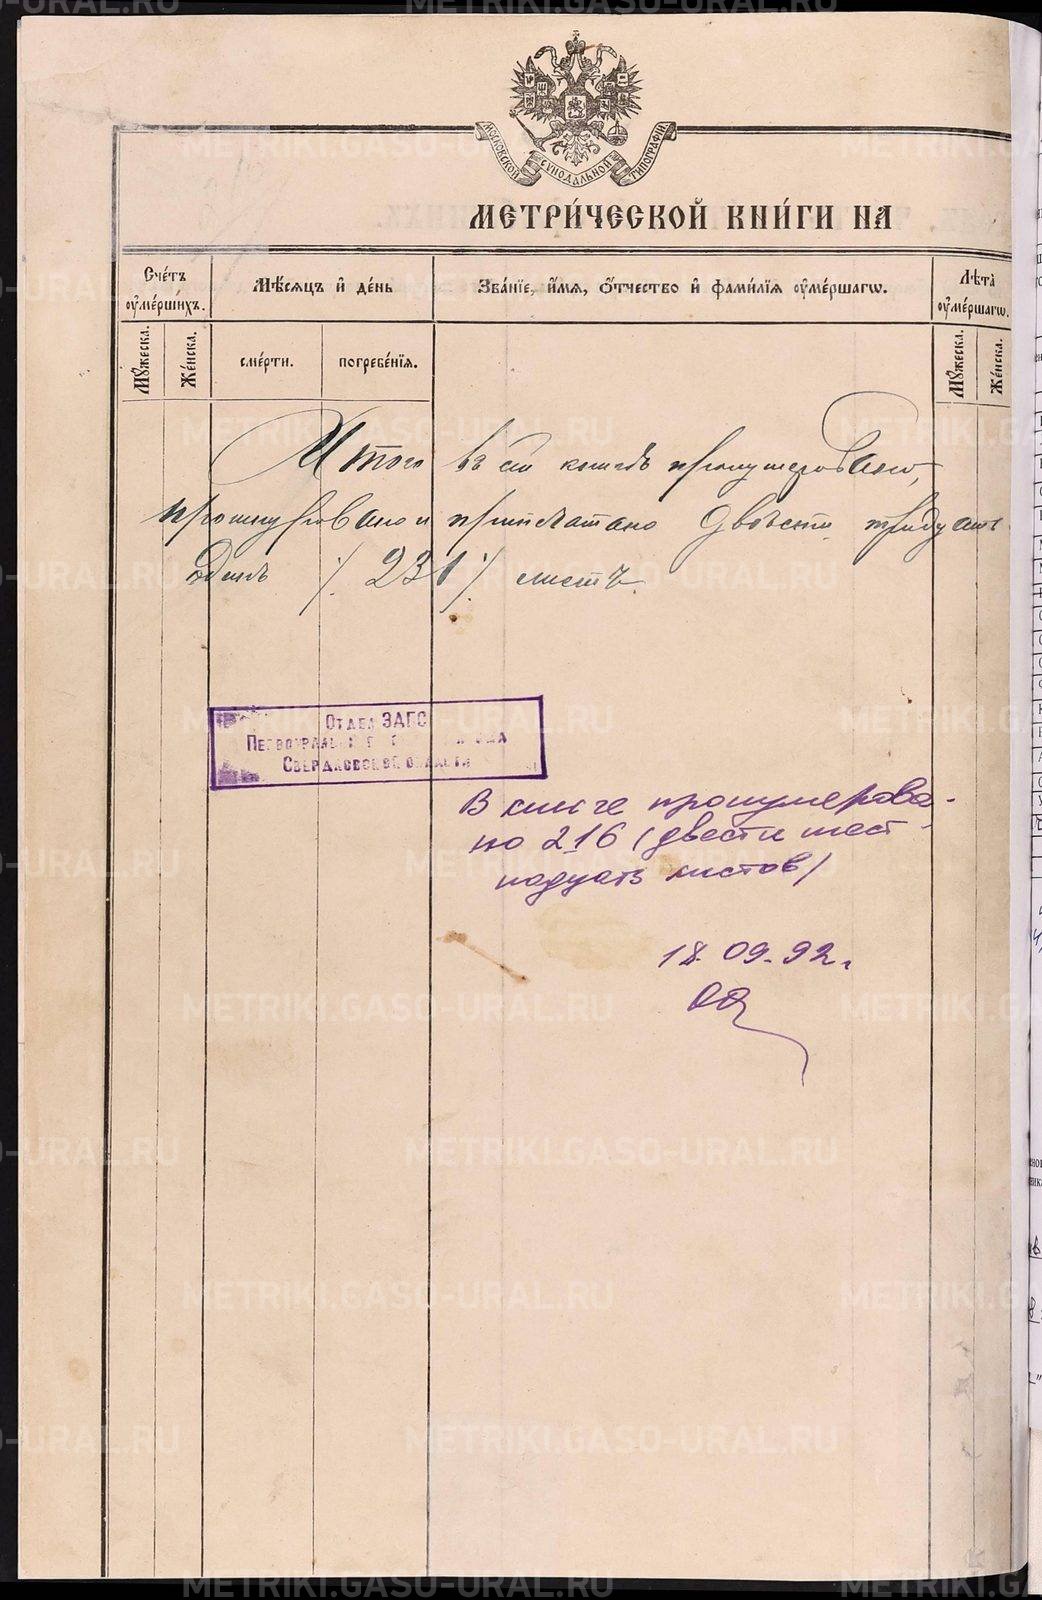 МОСКОВСКОЙ СУНОДАЛЬНОЙ ТИПОГРАФІИ
МЕТРИ́ЧЕСКОЙ КНИ́ГИ НА
Сче́тъ ᲂу҆ме́ршихъ.
Мѣ́сѧцъ и҆ де́нь
Зва́нїе, и҆́мѧ, ѻ҆́тчество и҆ фами́лїѧ ᲂу҆ме́ршагѡ.
Лѣ́та ᲂу҆ме́ршагѡ.
Мꙋ́жеска.
Же́нска.
сме́рти.
погребе́нїѧ.
Мꙋ́жеска.
Же́нска.
Итого въ сей книгѣ пронумеровано,
прошнуровано и припечатано двѣсти тридцать
одинъ /. 231 ./ листъ.
Отдел ЗАГС
Свердловской области
В книге пронумерова-
но 216 (двести шест-
надцать листов)
18.09.92г.
METRIKI.GASO-URAL.RU